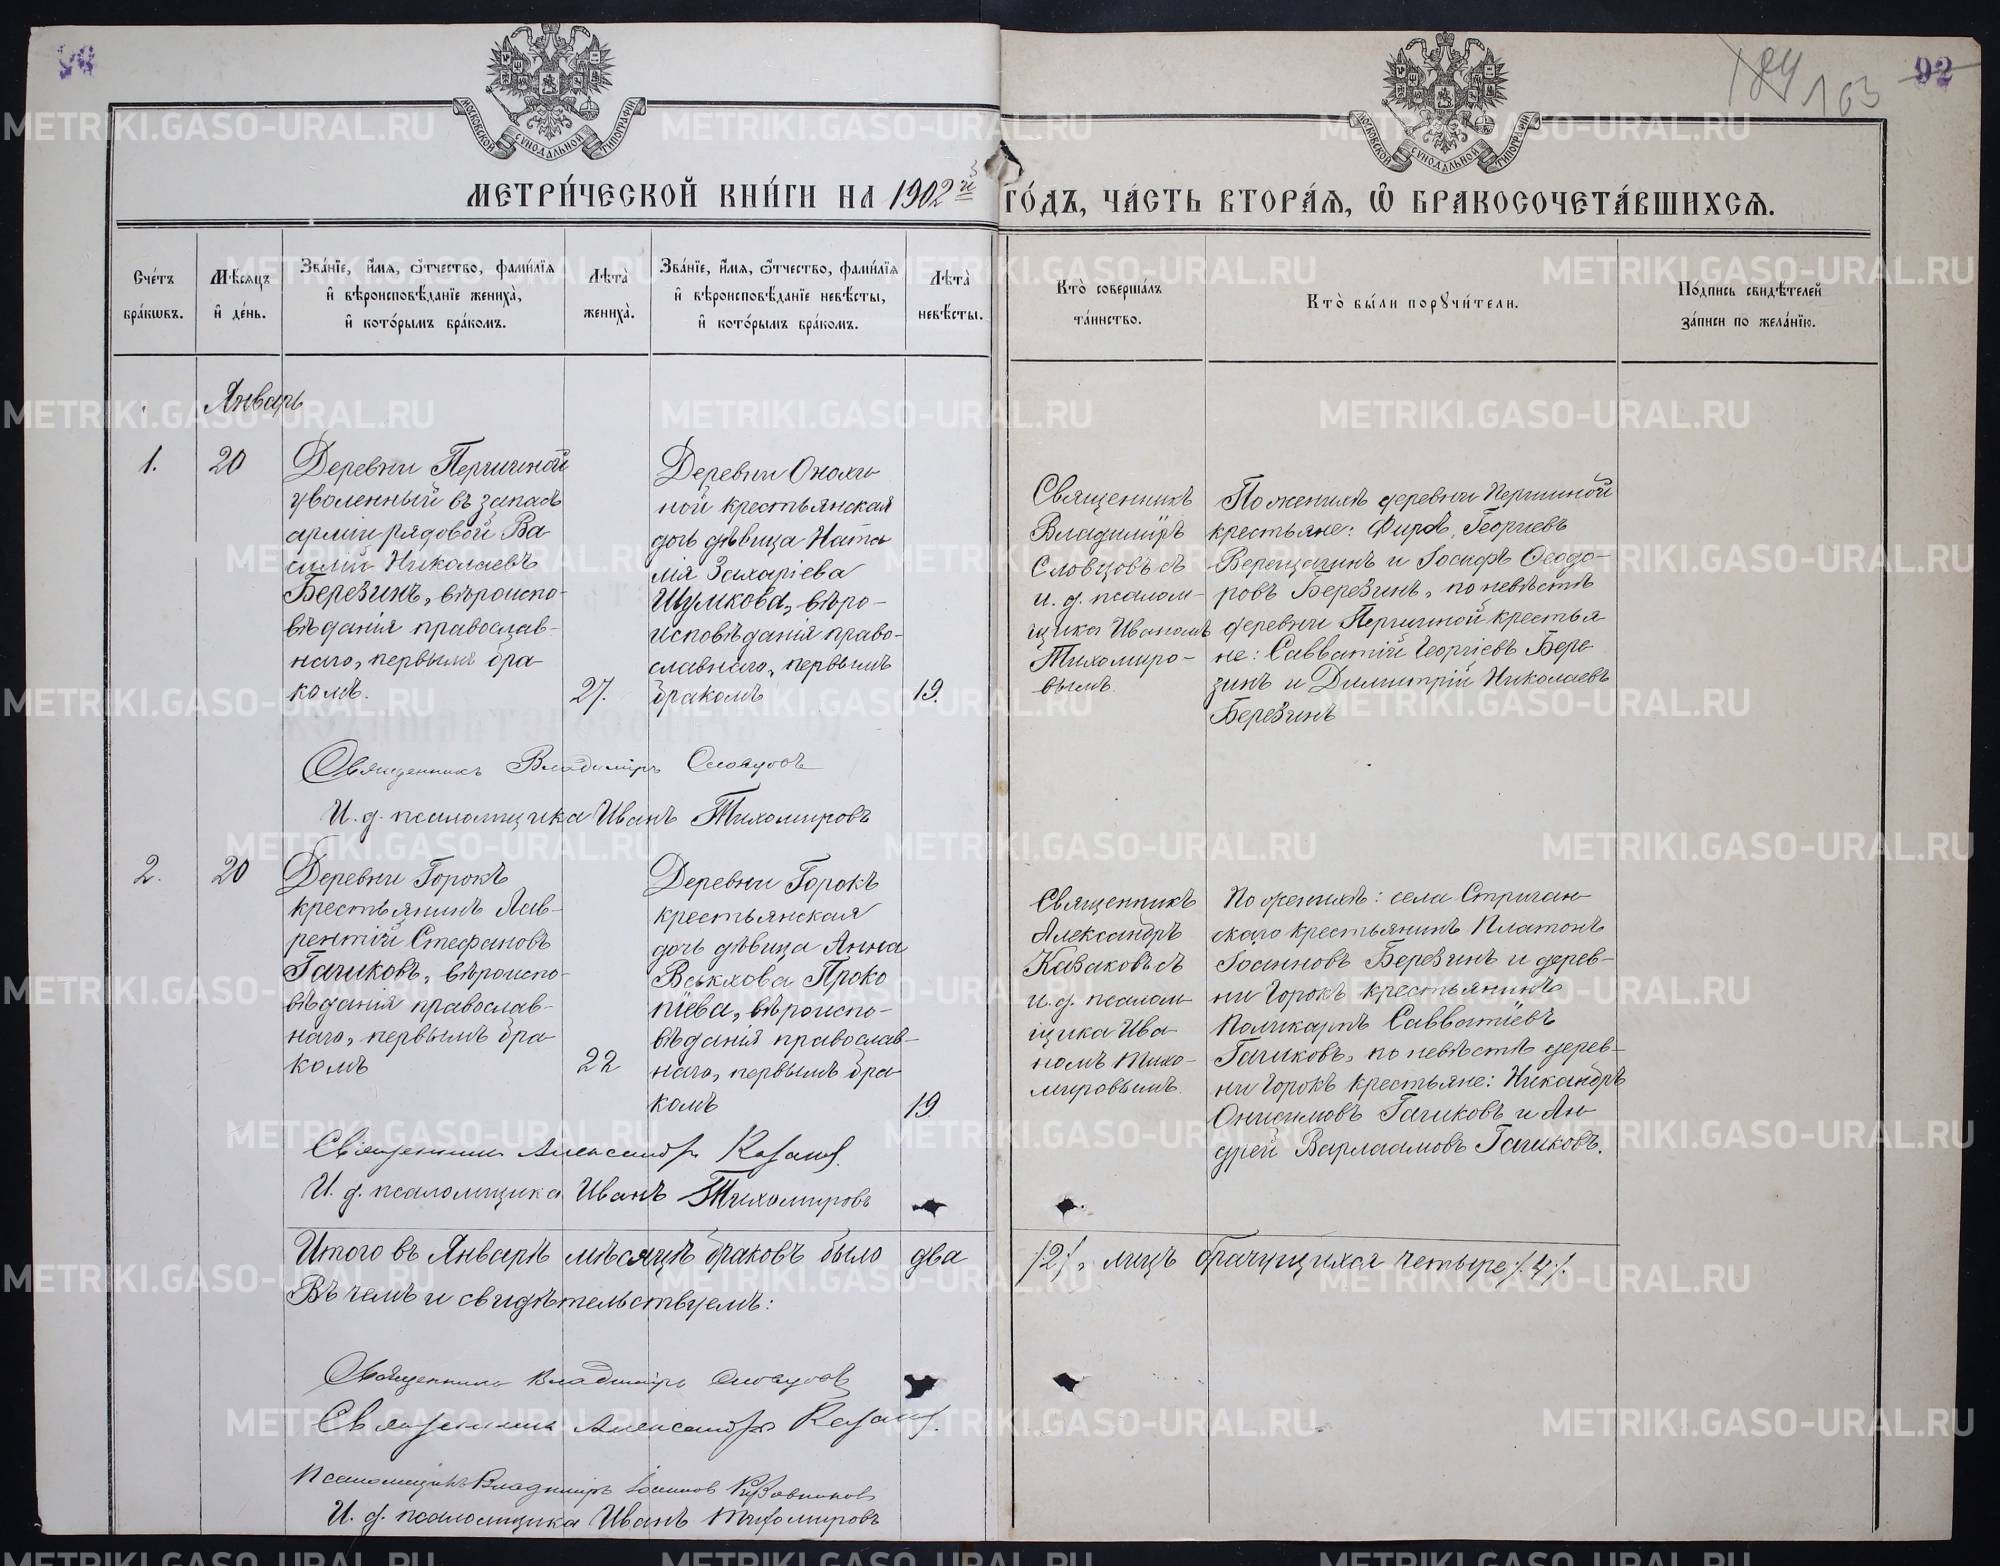 92
184
163
МОСКОВСКОЙ СѴНОДАЛЬНОЙ ТИПОГРАФІИ
МОСКОВСКОЙ СѴНОДАЛЬНОЙ ТИПОГРАФІИ
МЕТРИ́ЧЕСКОЙ КНИ́ГИ НА 1902й ГО́ДЪ, ЧА́СТЬ ВТОРА́Ѧ, Ѽ БРАКОСОЧЕТА́ВШИХСѦ.
Сче́тъ бра́кωвъ.
Мѣ́сѧцъ и҆ де́нь.
Зва́нїе, и҆́мѧ, ѻ҆́тчество, фами́лїѧ и҆ вѣроисповѣ́данїе жениха̀, и҆ кото́рымъ бра́комъ.
Лѣ́та̀ жениха̀.
Зва́нїе, и҆́мѧ, ѻ҆́тчество, фами́лїѧ и҆ вѣроисповѣ́данїе невѣ́сты, и҆ кото́рымъ бра́комъ.
Лѣ́та̀ невѣ́сты.
Кто̀ соверша́лъ та́инство.
Кто̀ бы́ли порꙋчи́тели.
По́дпись свидѣ́телей за́писи по жела́нїю.
Январь
1.
20
Деревни Першиной
уволенный въ запасъ
арміи рядовой Ва-
силій Николаевъ
Березинъ, вѣроиспо-
вѣданія православ-
наго, первымъ бра-
комъ.
27.
Деревни Онохи-
ной крестьянская
дочь дѣвица Ната-
лія Захаріева
Шумкова, вѣро-
исповѣданія право-
славнаго, первымъ
бракомъ
19.
Священникъ
Владиміръ
Словцовъ съ
и. д. псалом-
щика Иваномъ
Тихомиро-
вымъ.
По женихѣ деревни Першиной
крестьяне: Фирсъ Георгіевъ
Верещагинъ и Іосифъ Ѳеодо-
ровъ Березинъ, по невѣстѣ
деревни Першиной крестья-
не: Савватій Георгіевъ Бере-
зинъ и Димитрій Николаевъ
Березинъ
Священникъ Владиміръ Словцовъ
И. д. псаломщика Иванъ Тихомировъ
2.
20
Деревни Горокъ
крестьянинъ Лав-
рентій Стефановъ
Гачиковъ, вѣроиспо-
вѣданія православ-
наго, первымъ бра-
комъ
22
Деревни Горокъ
крестьянская
дочь дѣвица Анна
Проко
піева, вѣроиспо-
вѣданія православ-
наго, первымъ бра-
комъ
19.
Священникъ
Александръ
Казаковъ съ
и. д. псалом-
щика Ива-
номъ Тихо-
мировымъ.
По женихѣ: села Стриган-
скаго крестьянинъ Платонъ
Іоанновъ Березинъ и дерев-
ни Горокъ крестьянинъ
Поликарпъ Савватіевъ
Гачиковъ, по невѣстѣ дерев-
ни Горокъ крестьяне: Никандръ
Онисимовъ Гачиковъ и Ан-
дрей Варлаамовъ Гачиковъ.
Священникъ Александръ Казаковъ
И. д. псаломщика Иванъ Тихомировъ
Итого въ Январѣ мѣсяцѣ браковъ было два /2/, лицъ брачущихся четыре /4/.
Въ чемъ и свидѣтельствуемъ:
Священникъ Владиміръ Словцовъ
Священникъ Александръ Казаковъ
Псаломщикъ Владиміръ Іоанновъ
И. д. псаломщика Иванъ Тихомировъ
METRIKI.GASO-URAL.RU